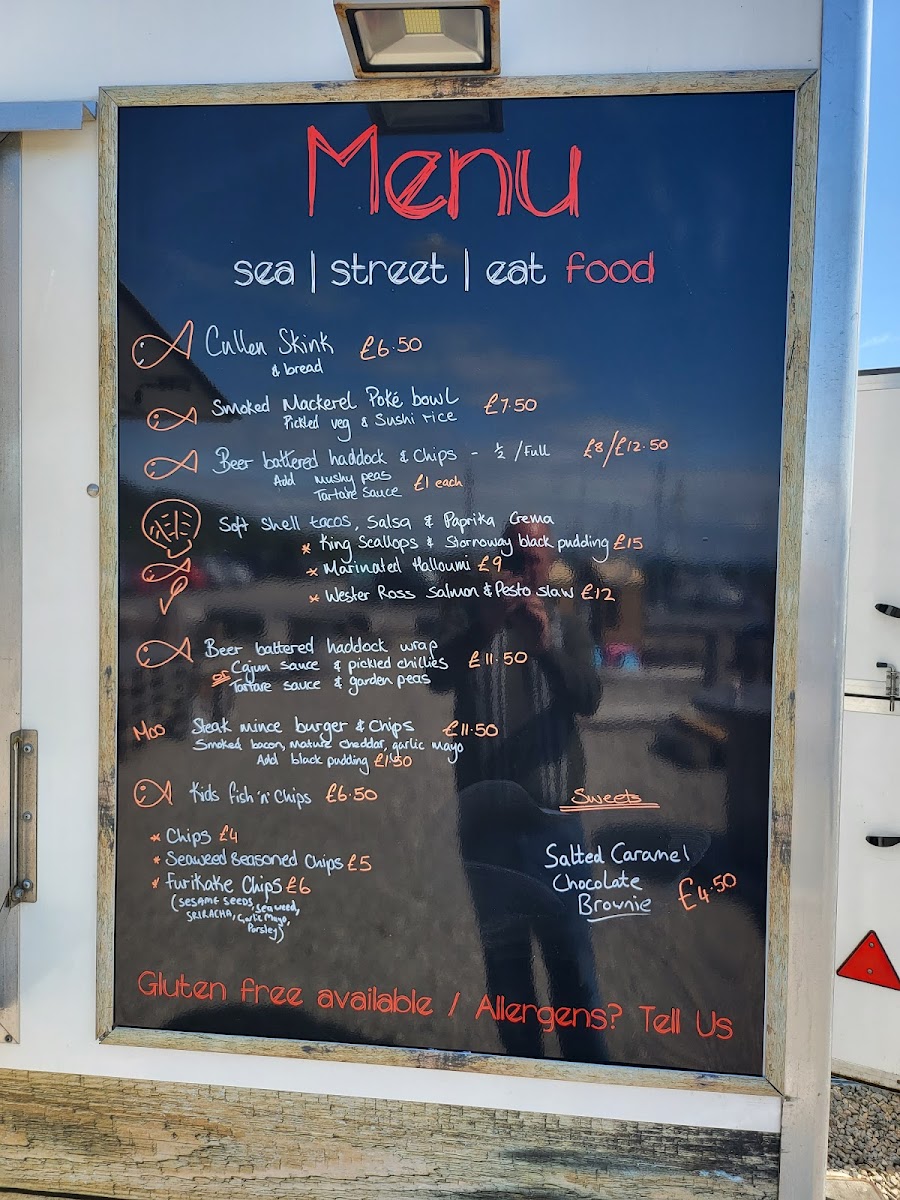 Menu
sea | street | eat food
Cullen Skink £6.50
& bread
Smoked Mackerel Poké bowl £7.50
Pickled veg & Sushi rice
Beer battered haddock & Chips - ½ / Full £8/£12.50
Add mushy peas
Tartare Sauce £1 each
Soft Shell tacos, Salsa & Paprika Crema
* King Scallops & Stornoway black pudding £15
* Marinated Halloumi £9
* Wester Ross Salmon & Pesto slaw £12
Beer battered haddock wrap
Cajun sauce & pickled chillies £11.50
or Tartare sauce & garden peas
Moo Steak mince burger & Chips £11.50
Smoked bacon, mature cheddar, garlic mayo
Add black pudding £1.50
Kids fish 'n' Chips £6.50
* Chips £4
* Seaweed Seasoned Chips £5
* Furikake Chips £6
(SESAME SEEDS, Seaweed,
SRIRACHA, Garlic Mayo,
Parsley)
Sweets
Salted Caramel
Chocolate
Brownie £4.50
Gluten free available / Allergens? Tell Us